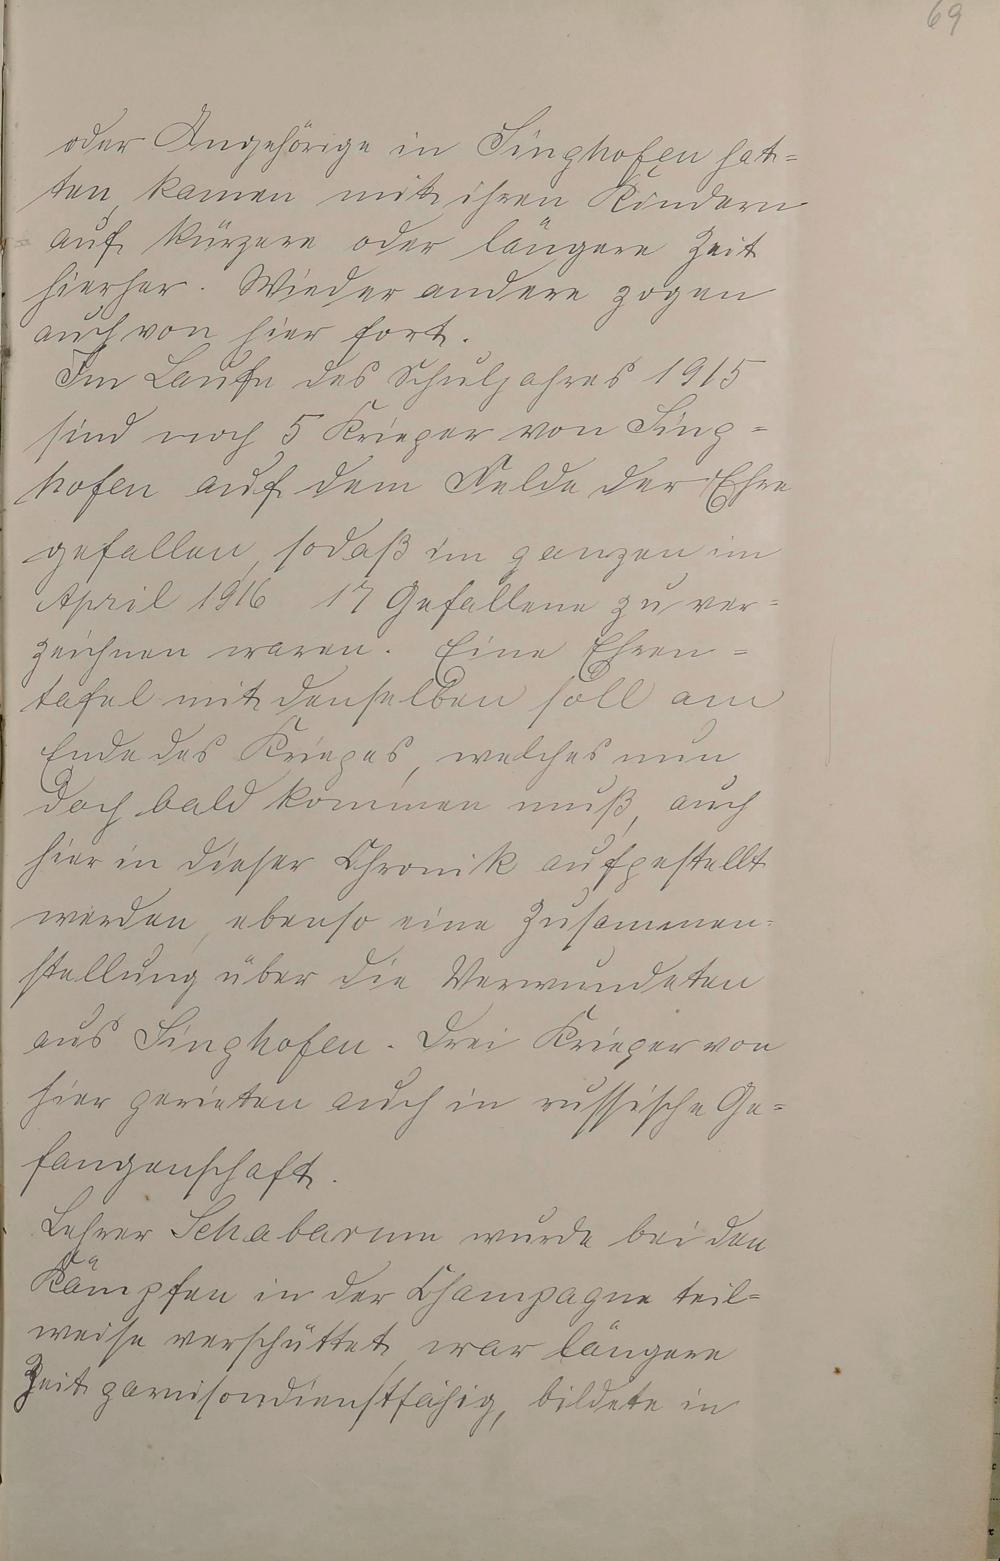 69
oder Angehörige in Singhofen hat=
ten, kamen mit ihren Kindern
auf kürzere oder längere Zeit
hierher. Wieder andere zogen
auch von hier fort.
Im Laufe des Schuljahres 1915
sind noch 5 Krieger von Sing=
hofen auf dem Felde der Ehre
gefallen, sodaß im ganzen im
April 1916 17 Gefallene zu ver=
zeichnen waren. Eine Ehren=
tafel mit denselben soll am
Ende des Krieges, welches nun
doch bald kommen muß, auch
hier in dieser Chronik aufgestellt
werden, ebenso eine Zusammen=
stellung über die Verwundeten
aus Singhofen. Drei Krieger von
hier gerieten auch in russische Ge=
fangenschaft.
Lehrer Schabarum wurde bei den
Kämpfen in der Champagne teil=
weise verschüttet, war längere
Zeit garnisondienstfähig, bildete in